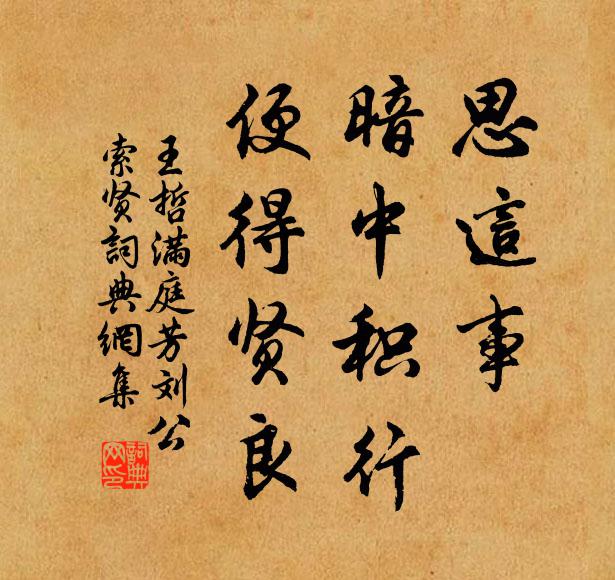 思這事
暗中积行
便得贤良
王哲满庭芳刘公
索贤詞典網集
詞典网印